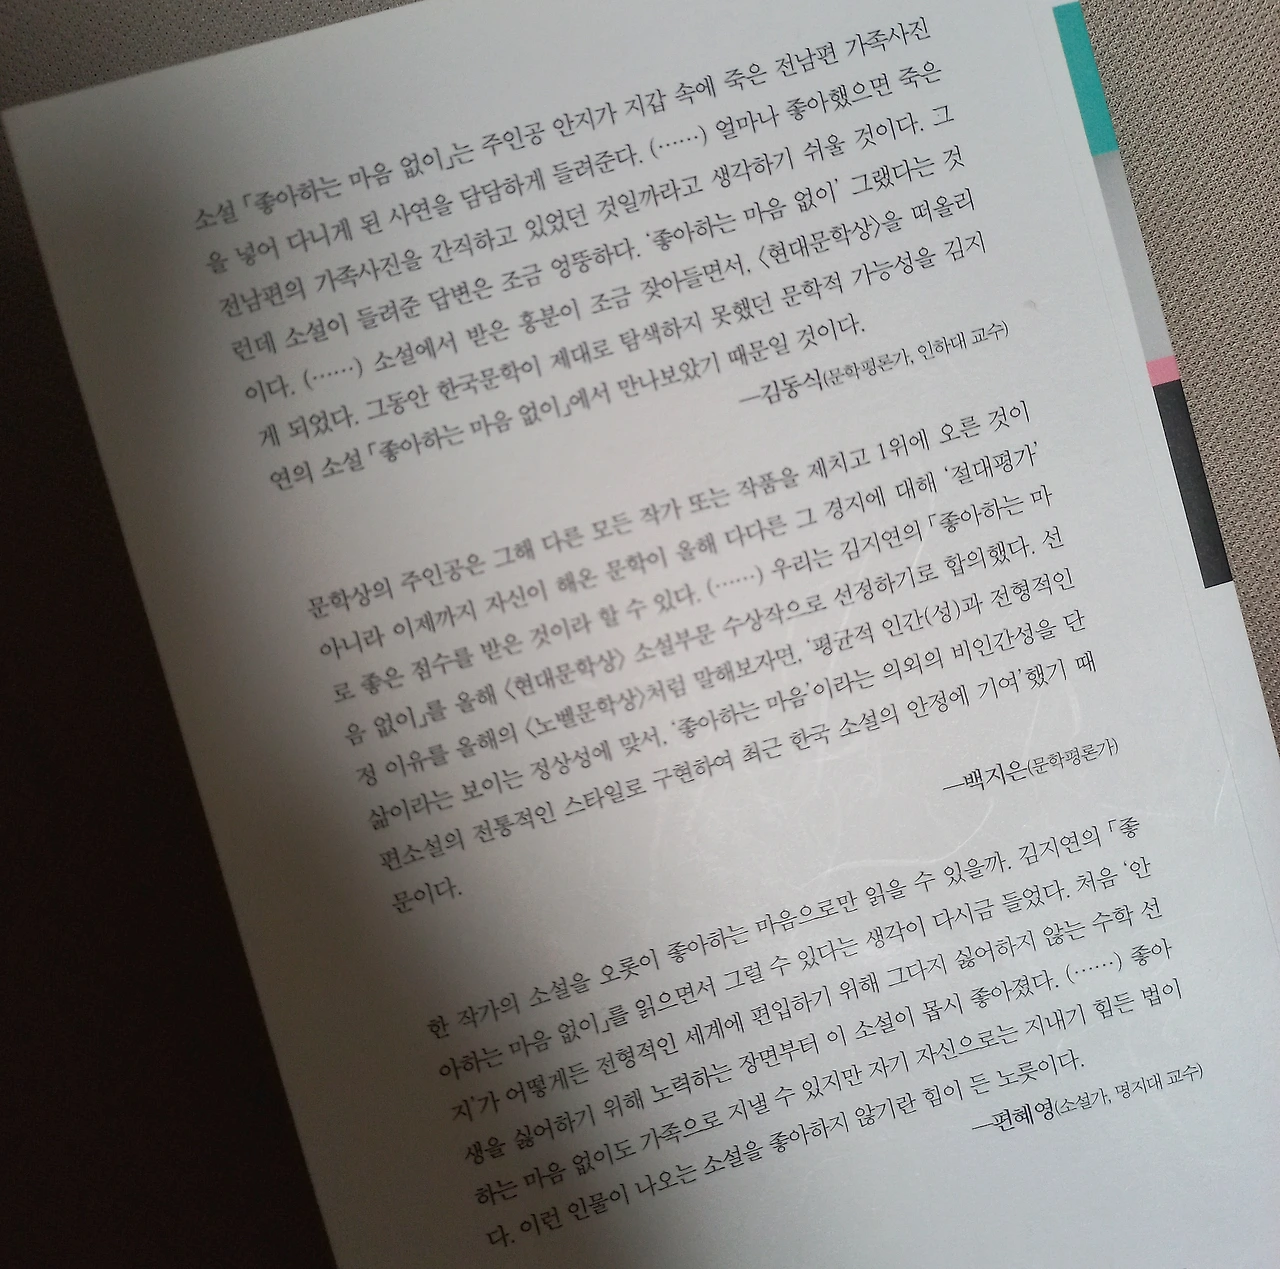 소설 「좋아하는 마음 없이」는 주인공 안지가 지갑 속에 죽은 전남편 가족사진
을 넣어 다니게 된 사연을 담담하게 들려준다. (……) 얼마나 좋아했으면 죽은
전남편의 가족사진을 간직하고 있었던 것일까라고 생각하기 쉬울 것이다. 그
런데 소설이 들려준 답변은 조금 엉뚱하다. ‘좋아하는 마음 없이’ 그랬다는 것
이다. (……) 소설에서 받은 흥분이 조금 잦아들면서, 〈현대문학상〉을 떠올리
게 되었다. 그동안 한국문학이 제대로 탐색하지 못했던 문학적 가능성을 김지
연의 소설 「좋아하는 마음 없이」에서 만나보았기 때문일 것이다.
—김동식(문학평론가, 인하대 교수)
문학상의 주인공은 그해 다른 모든 작가 또는 작품을 제치고 1위에 오른 것이
아니라 이제까지 자신이 해온 문학이 올해 다다른 그 경지에 대해 ‘절대평가’
로 좋은 점수를 받은 것이라 할 수 있다. (……) 우리는 김지연의 「좋아하는 마
음 없이」를 올해 〈현대문학상〉 소설부문 수상작으로 선정하기로 합의했다. 선
정 이유를 올해의 〈노벨문학상〉처럼 말해보자면, ‘평균적 인간(성)과 전형적인
삶이라는 보이는 정상성에 맞서, ‘좋아하는 마음’이라는 의외의 비인간성을 단
편소설의 전통적인 스타일로 구현하여 최근 한국 소설의 안정에 기여’했기 때
문이다.
—백지은(문학평론가)
한 작가의 소설을 오롯이 좋아하는 마음으로만 읽을 수 있을까. 김지연의 「좋
아하는 마음 없이」를 읽으면서 그럴 수 있다는 생각이 다시금 들었다. 처음 ‘안
지’가 어떻게든 전형적인 세계에 편입하기 위해 그다지 싫어하지 않는 수학 선
생을 싫어하기 위해 노력하는 장면부터 이 소설이 몹시 좋아졌다. (……) 좋아
하는 마음 없이도 가족으로 지낼 수 있지만 자기 자신으로는 지내기 힘든 법이
다. 이런 인물이 나오는 소설을 좋아하지 않기란 힘이 든 노릇이다.
—편혜영(소설가, 명지대 교수)